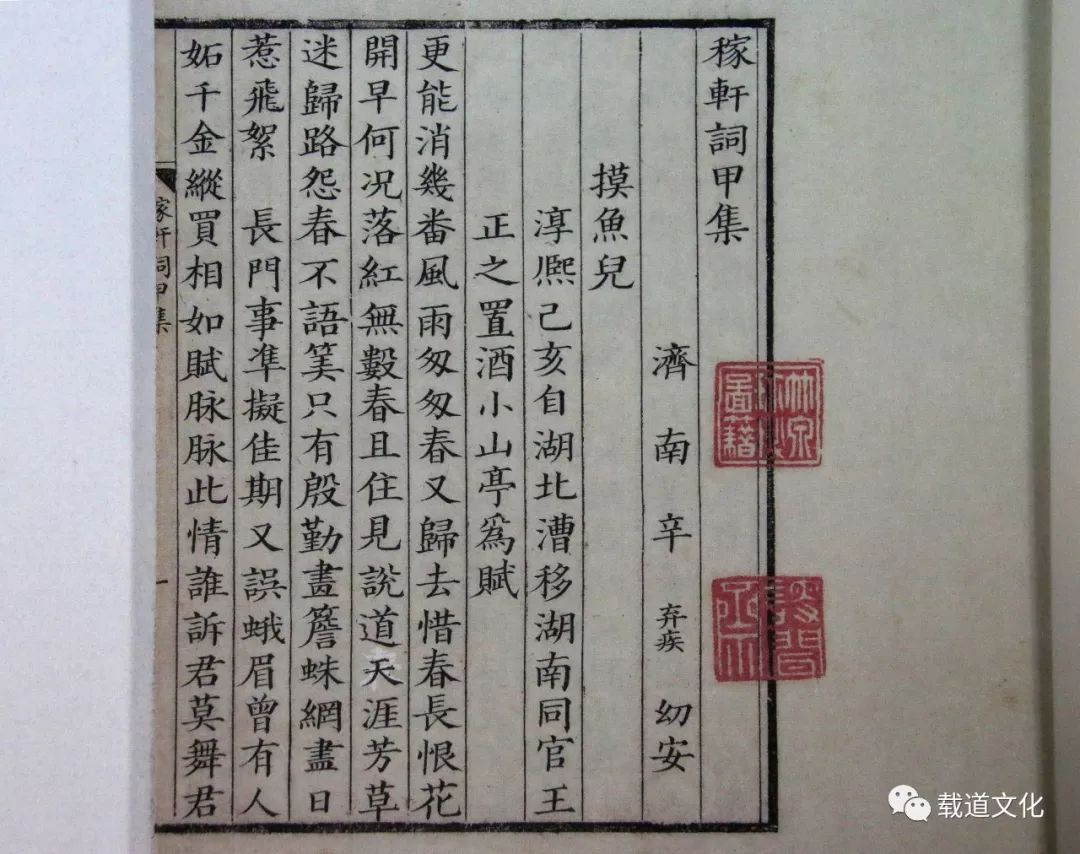 稼軒詞甲集
濟南辛弃疾幼安
摸魚兒
淳熈己亥自湖北漕移湖南同官王
正之置酒小山亭爲賦
更能消幾畨風雨匆匆春又歸去惜春長恨花
開早何况落紅無數春且住見說道天涯芳草
迷歸路怨春不語筭只有殷勤畫簷蛛網盡日
惹飛絮 長門事凖擬佳期又誤蛾眉曾有人
妬千金縱買相如賦脉脉此情誰訴君莫舞君
稼軒詞甲集
一
載道文化